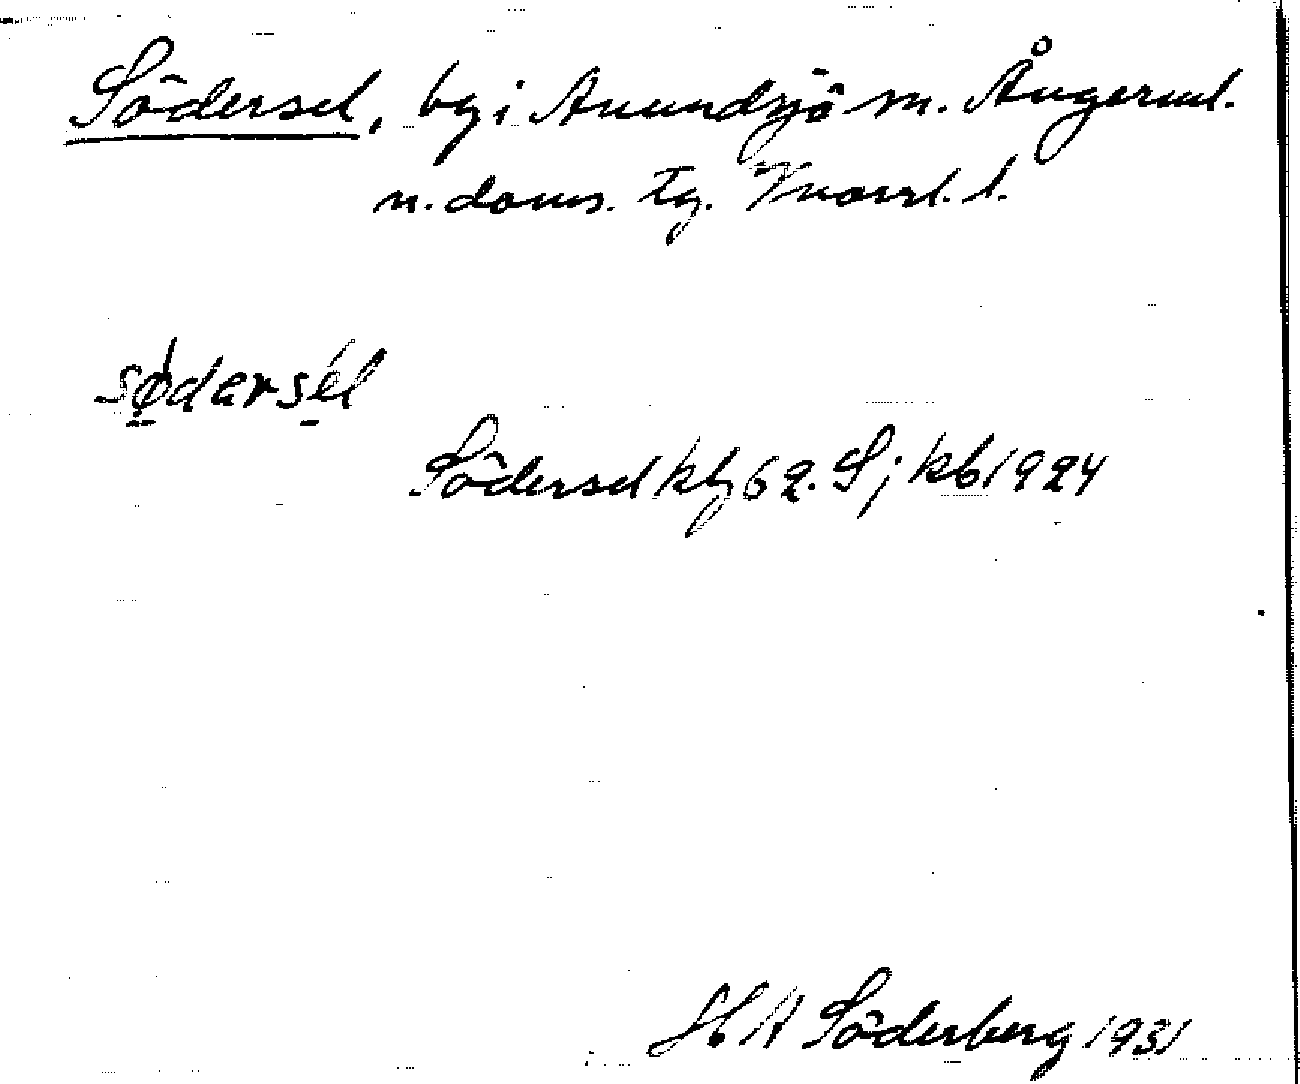 Södersel, by i Anundsjö sn. Ångerml.
n. doms. tg. Vnorrl. l.
sø̱dərsé̱l
Södersel kby 62. S; kb 1924
H A Söderberg 1931